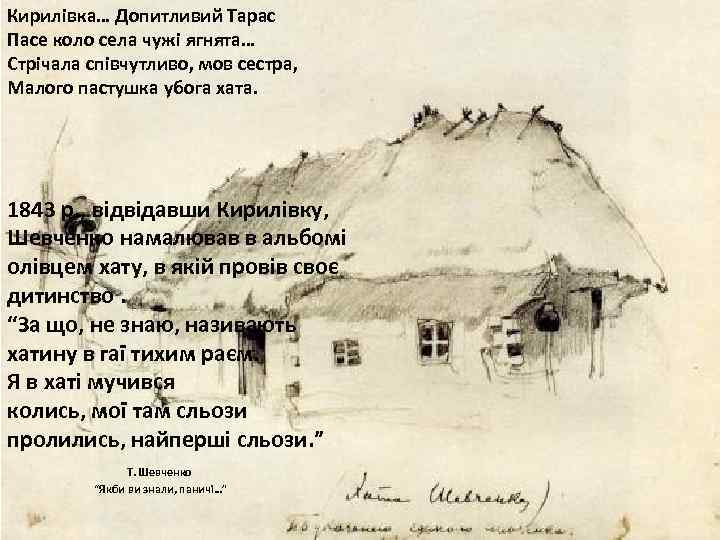 Кирилівка… Допитливий Тарас
Пасе коло села чужі ягнята…
Стрічала співчутливо, мов сестра,
Малого пастушка убога хата.
1843 р., відвідавши Кирилівку,
Шевченко намалював в альбомі
олівцем хату, в якій провів своє
дитинство .
“За що, не знаю, називають
хатину в гаї тихим раєм.
Я в хаті мучився
колись, мої там сльози
пролились, найперші сльози. ”
Т. Шевченко
“Якби ви знали, паничі…”
Хата Шевченка)